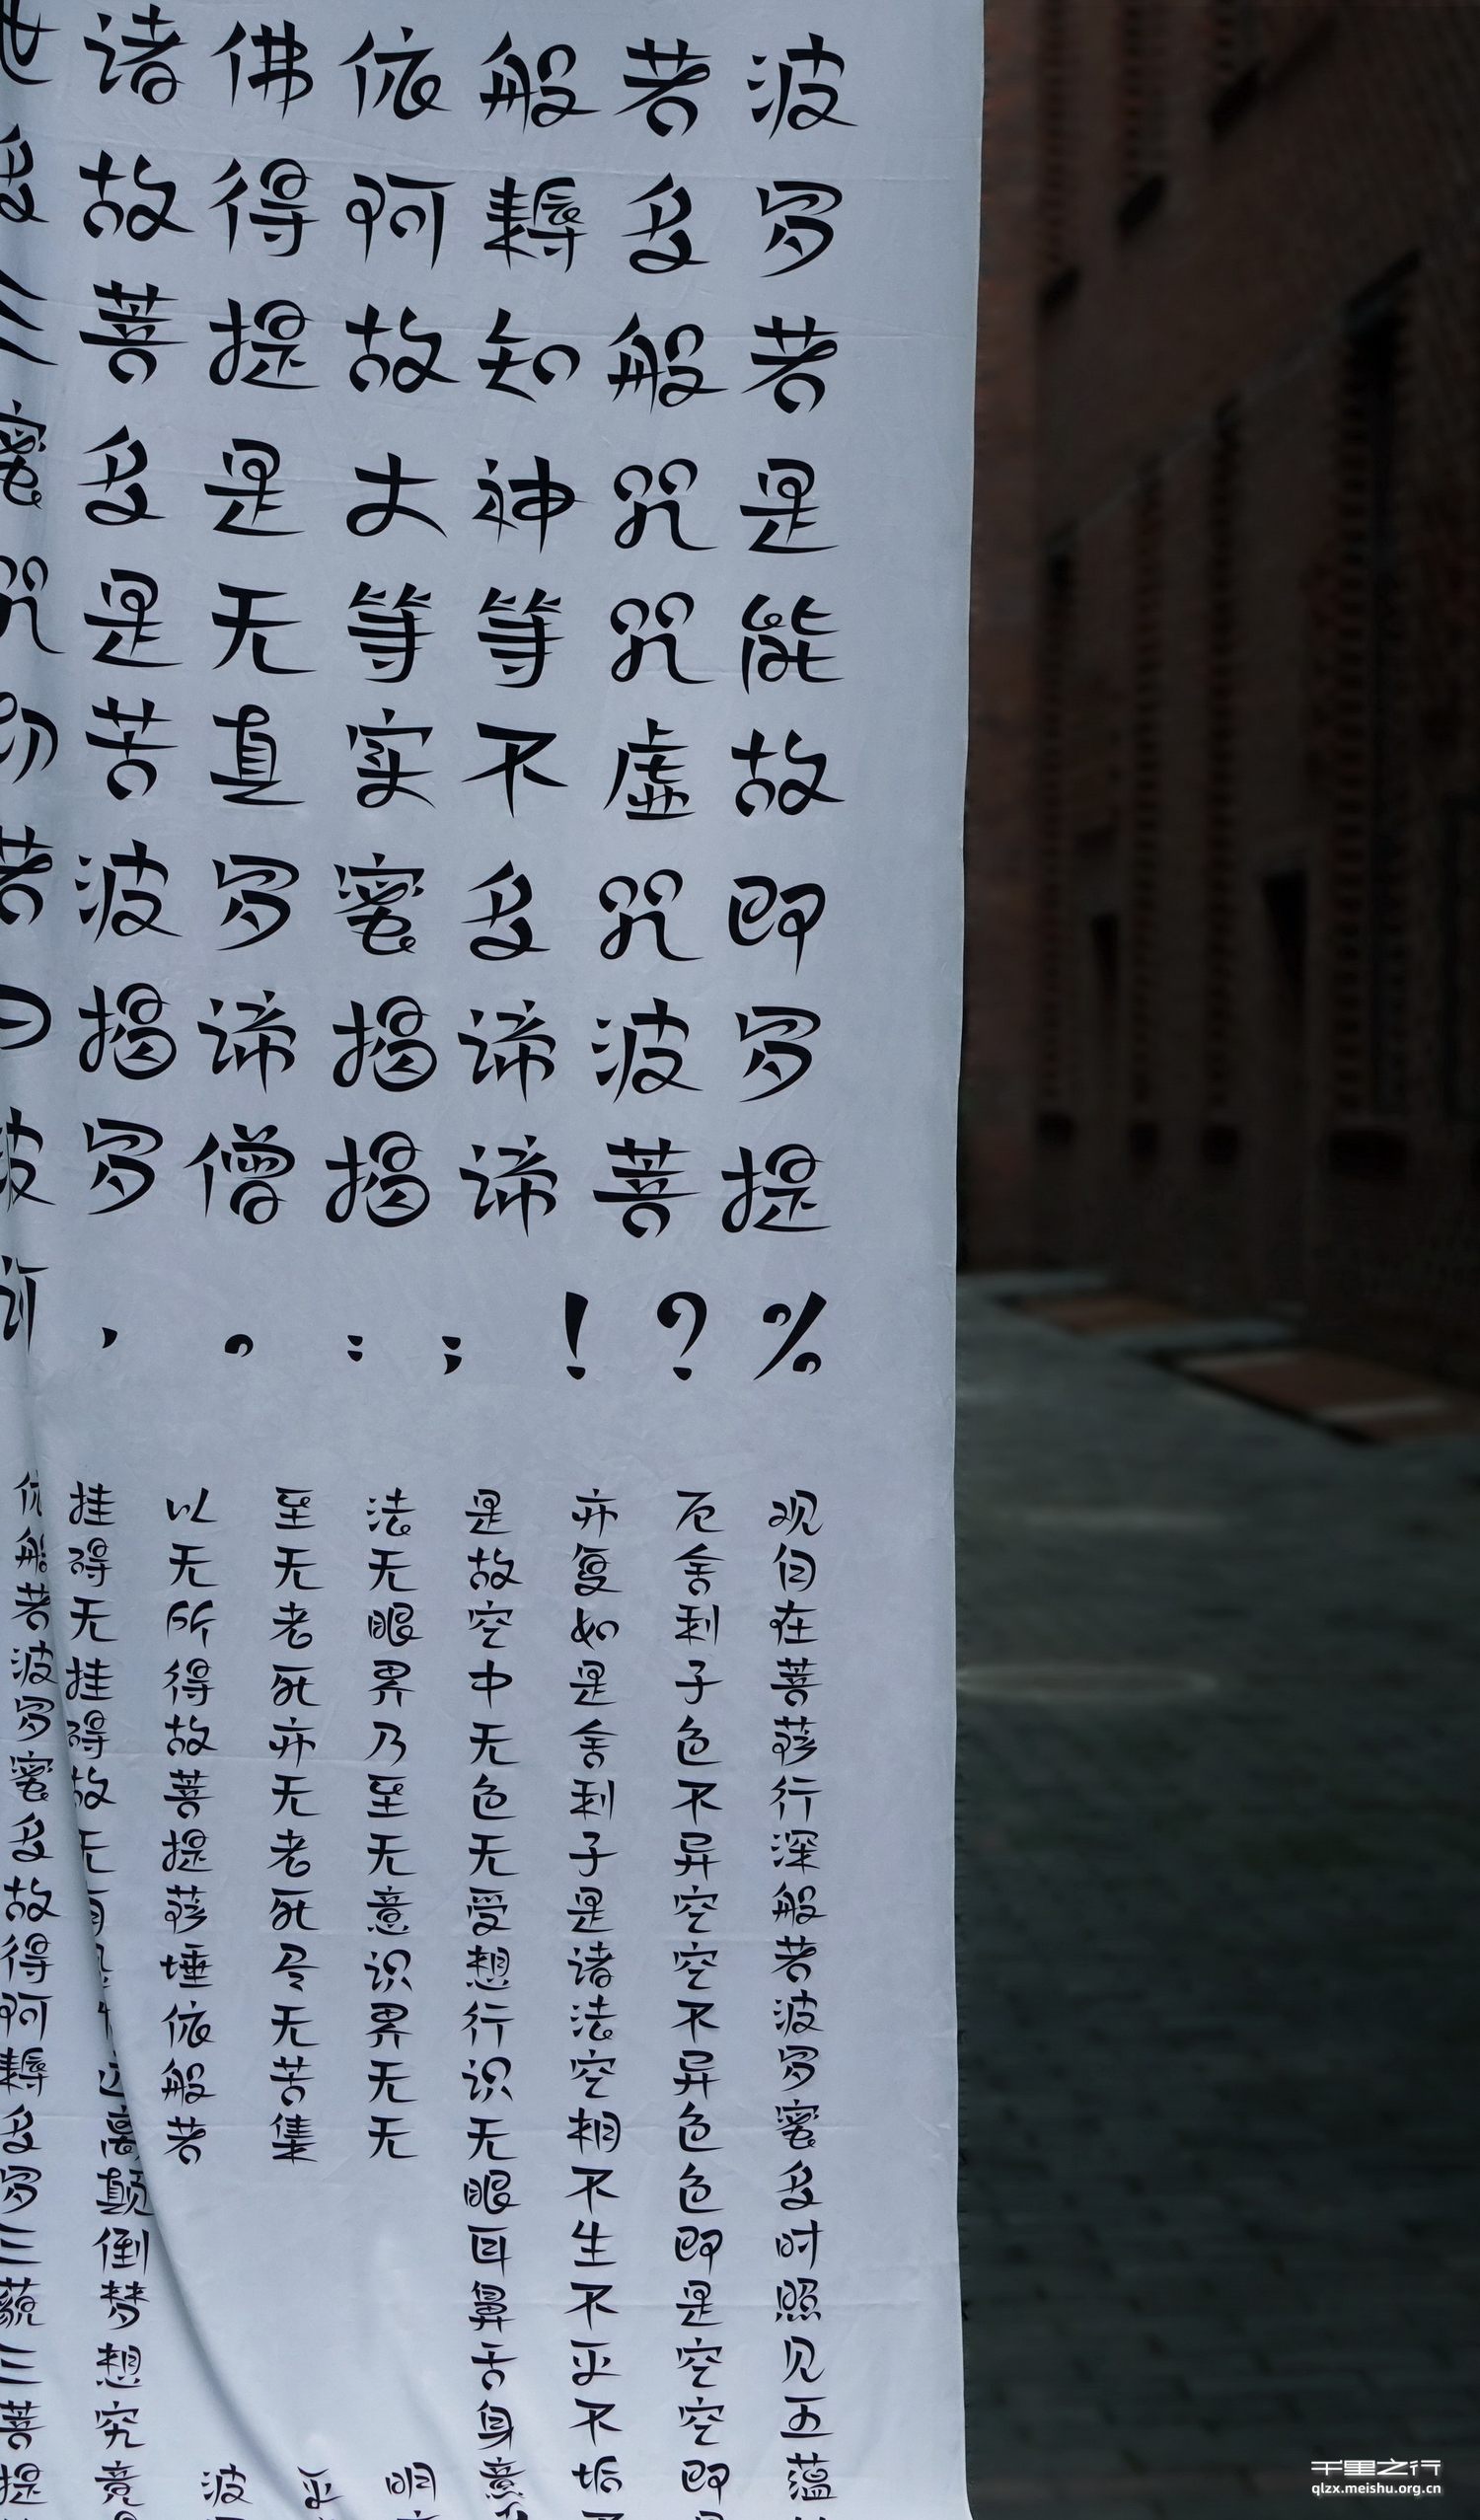 世诸佛依般若波
多故得阿耨多罗
三菩提故知般若
蜜多是大神咒是
咒是无等等咒能
切苦真实不虚故
若波罗蜜多咒即
曰揭谛揭谛波罗
波罗僧揭谛菩提
诃，。：；！？%
观自在菩萨行深般若波罗蜜多时照见五蕴
厄舍利子色不异空空不异色色即是空空即
亦复如是舍利子是诸法空相不生不灭不垢
是故空中无色无受想行识无眼耳鼻舌身意
法无眼界乃至无意识界无无明
至无老死亦无老死尽无苦集灭
以无所得故菩提萨埵依般若波
挂碍无挂碍故无有远离颠倒梦想究竟
依般若波罗蜜多故得阿耨多罗三藐三菩提
千里之行
qlzx.meishu.org.cn